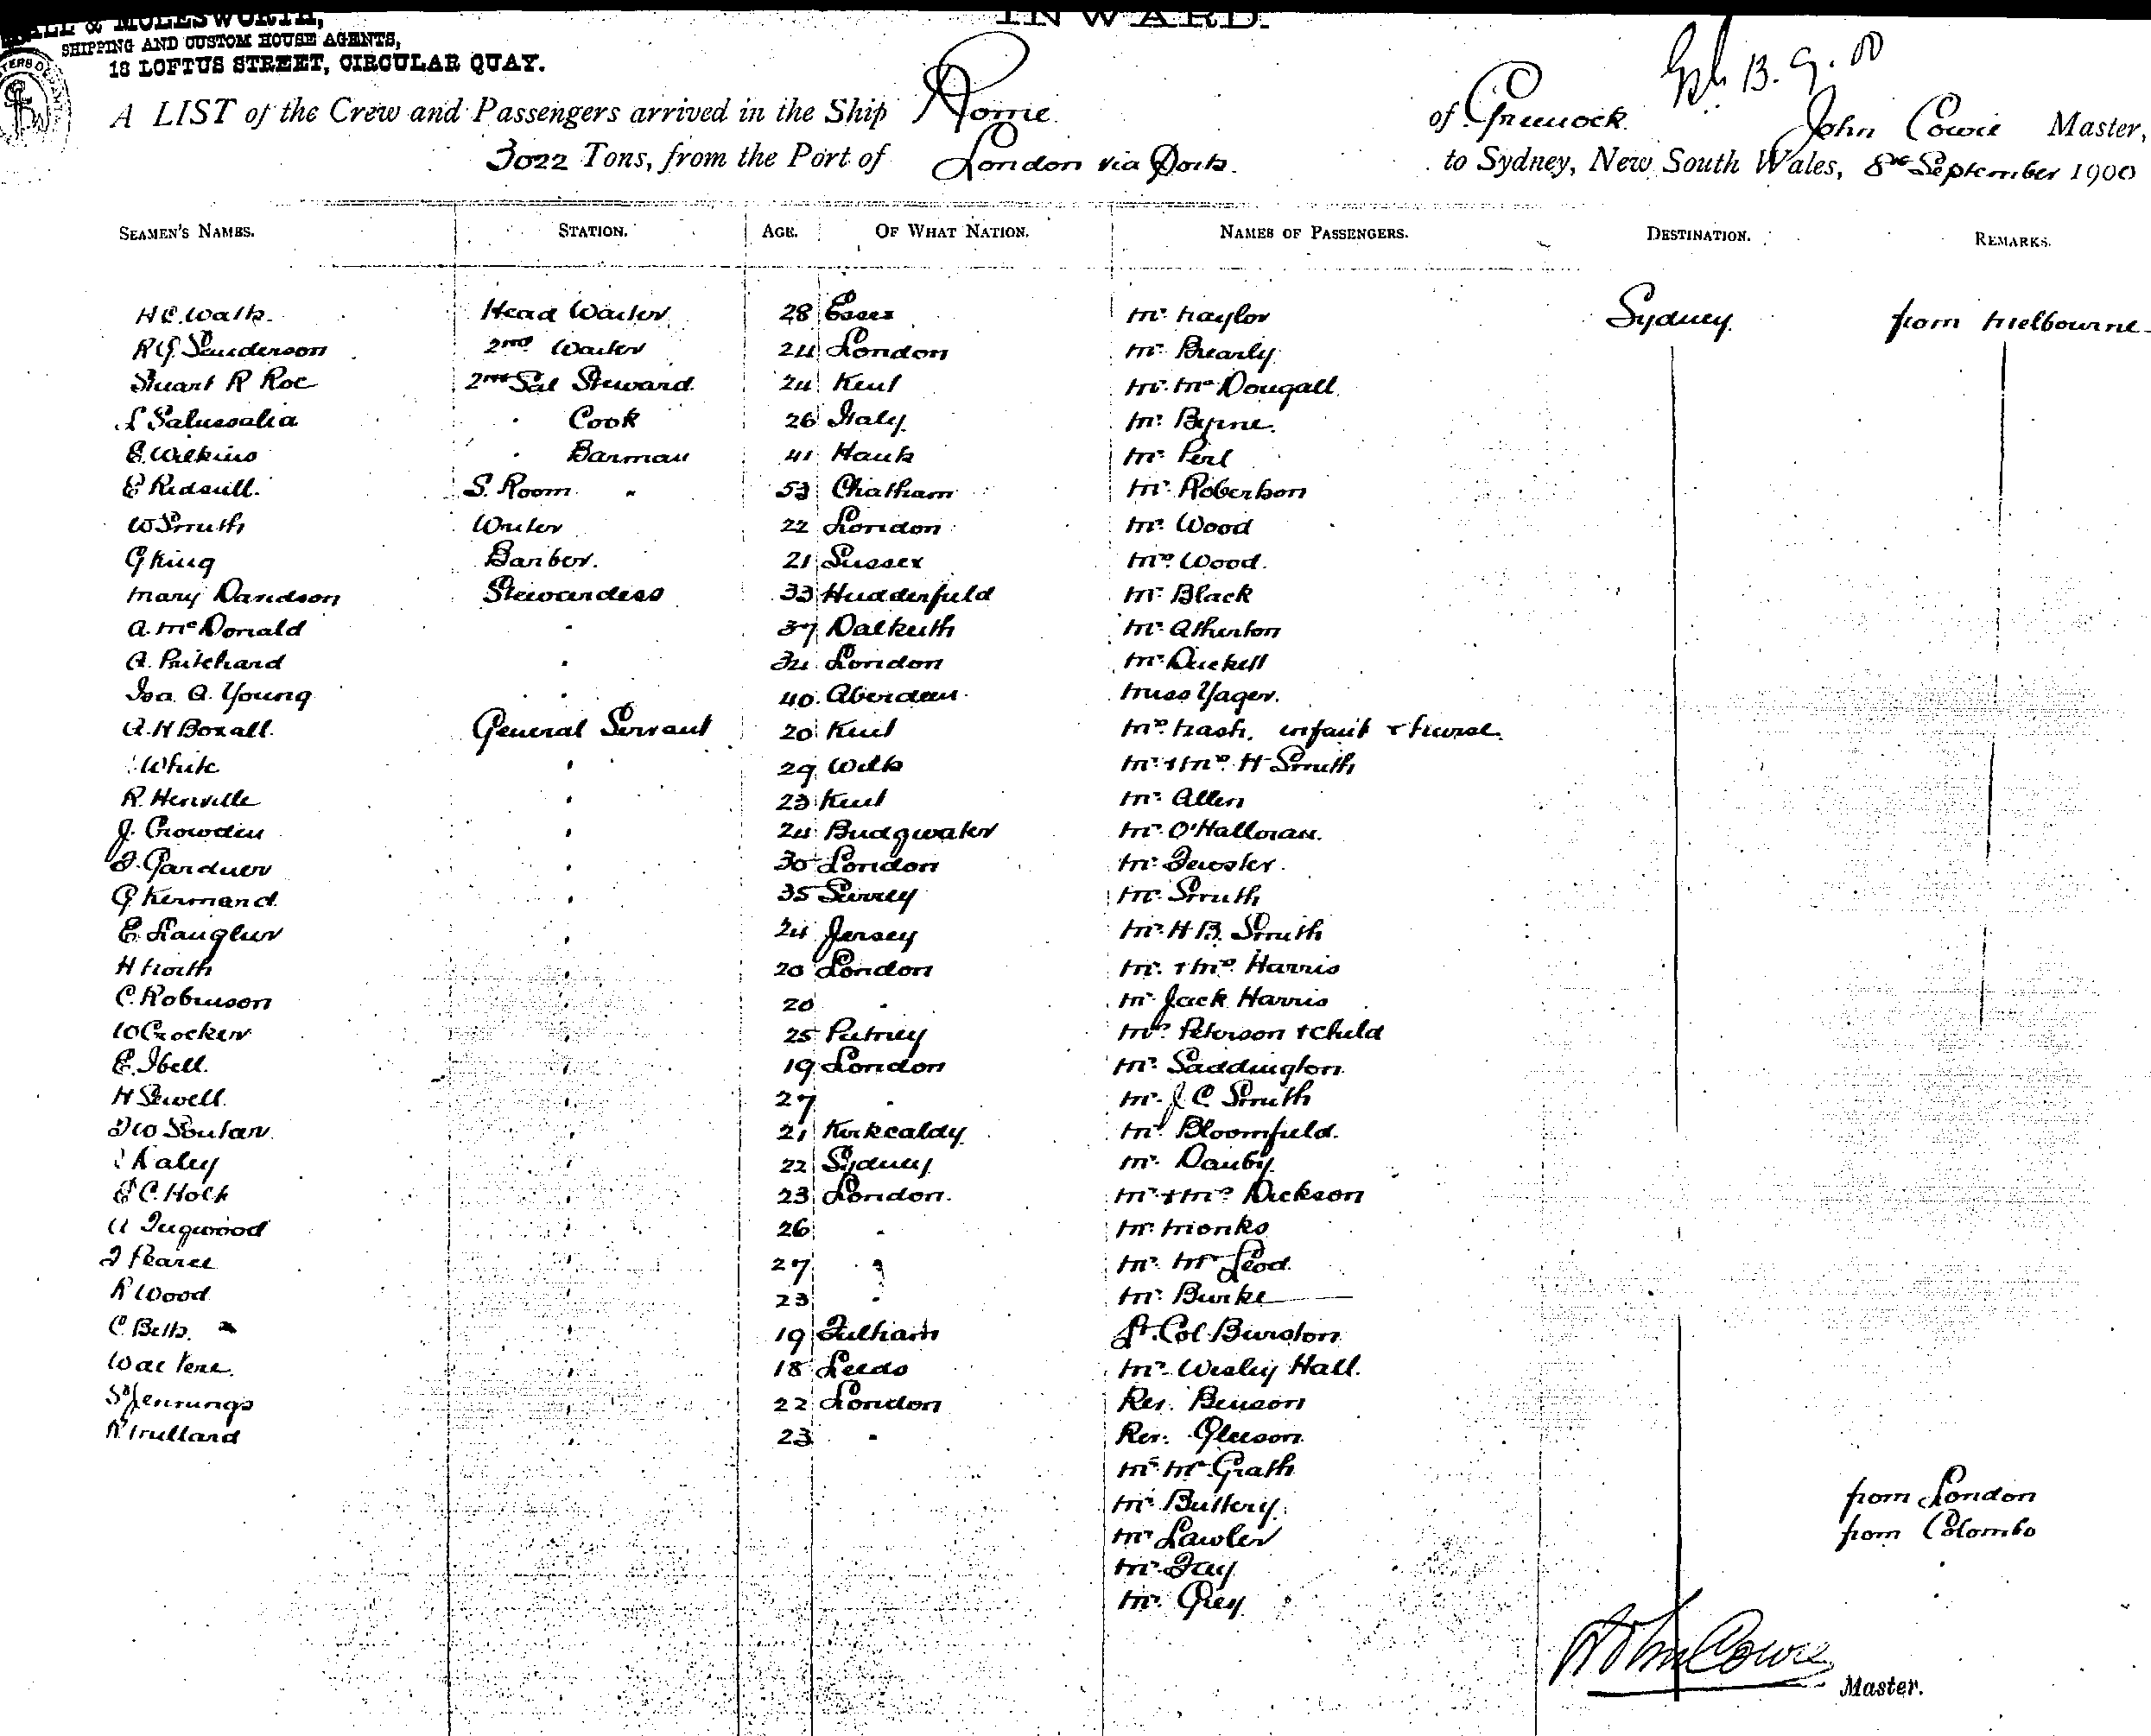 & MOLESWORTH,
INWARD.
SHIPPING AND CUSTOM HOUSE AGENTS,
18 LOFTUS STREET, CIRCULAR QUAY.
13.9.00
A LIST of the Crew and Passengers arrived in the Ship Rome of Greenock John Cowie Master,
3022 Tons, from the Port of London via Ports. to Sydney, New South Wales, 8th September 1900
SEAMEN'S NAMES. STATION. AGE. OF WHAT NATION. NAMES OF PASSENGERS. DESTINATION. REMARKS.
H C. Watts. Head Waiter 28 Essex Mr. Naylor Sydney. from Melbourne
R G Sanderson 2nd Waiter 24 London Mr. Brearly
Stuart R Roe 2nd Sal Steward 24 Kent Mr. McDougall
Cook 26 Italy Mr. Byrne.
E. Wilkins " Barman 41 Hants Mr. Perl
E Ridsull. S. Room " 53 Chatham Mr. Robertson
W Smith Writer 22 London Mr. Wood
G King Barber. 21 Sussex Mrs. Wood.
Mary Davidson Stewardess 33 Huddersfield Mr. Black
A. McDonald " 37 Dalkeith Mr. Atherton
A. Pritchard " 34 London Mr. Duckett
Isa. A. Young " 40 Aberdeen Miss Yager.
A. H Boxall. General Servant 20 Kent Mrs. Nash, infant & Nurse.
White " 29 Wilts Mr. & Mrs. H Smith
R. Henville " 23 Kent Mr. Allen
J. Crowden " 24 Bridgwater Mr. O'Halloran.
F. Gardner " 30 London Mr. Fewster.
G Kermand " 35 Surrey Mr. Smith
E. Langlur " 24 Jersey Mr. H B. Smith
H North " 20 London Mr. & Mrs. Harris
C. Robinson " 20 " Mr. Jack Harris
W Crocker " 25 Putney Mrs. Peterson & Child
E. Ibell. " 19 London Mr. Saddington
H Sewell. " 27 " Mr. J C Smith
F W Soutar. " 21 Kirkcaldy Mr. Bloomfield.
Daley " 22 Sydney Mr. Danby
E C. Holt " 23 London. Mr. & Mrs. Dickson
A Tugwood " 26 " Mr. Monks
F Pearce " 27 " Mr. McLeod.
R Wood " 23 " Mr. Burke
C. Betts. " 19 Fulham Lt. Col. Burston
" 18 Leeds Mr. Wesley Hall.
S Jennings " 22 London Rev. Benson
R. Mullard " 23 " Rev. Gleeson
Mr. McGrath
Mr. Buttery. from London
Mr. Lawler from Colombo
Mr. Fay "
Mr. Grey "
John Cowie
Master.